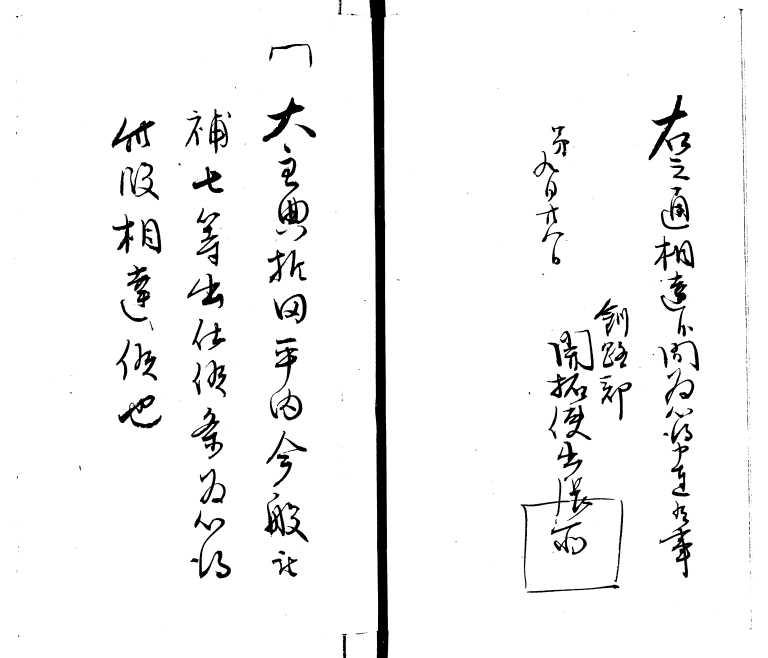 右之通相達候間為心得申達候事
第九月廿八日
釧路郡
開拓使出張所
大主典折田平内今般
補七等出仕候条為心得
此段相達候也